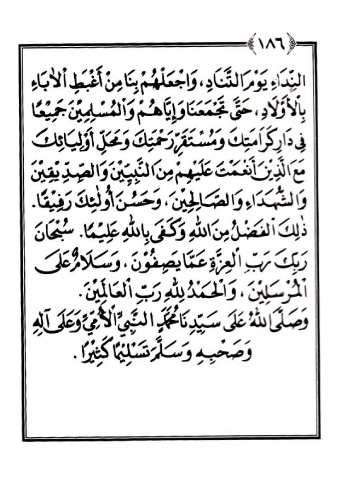 ١٨٦
النِّدَاءِ يَوْمَ التَّنَادِ، وَاجْعَلْهُمْ بِنَا مِنْ أَغْبَطِ الْآبَاءِ
بِالْأَوْلَادِ، حَتَّى تَجْمَعَنَا وَإِيَّاهُمْ وَالْمُسْلِمِيْنَ جَمِيْعًا
فِي دَارِ كَرَامَتِكَ وَمُسْتَقَرِّ رَحْمَتِكَ وَمَحَلِّ أَوْلِيَائِكَ
مَعَ الَّذِيْنَ أَنْعَمْتَ عَلَيْهِمْ مِنَ النَّبِيِّيْنَ وَالصِّدِّيْقِيْنَ
وَالشُّهَدَاءِ وَالصَّالِحِيْنَ، وَحَسُنَ أُولَٰئِكَ رَفِيْقًا.
ذٰلِكَ الْفَضْلُ مِنَ اللهِ وَكَفَى بِاللهِ عَلِيْمًا. سُبْحَانَ
رَبِّكَ رَبِّ الْعِزَّةِ عَمَّا يَصِفُوْنَ، وَسَلَامٌ عَلَى
الْمُرْسَلِيْنَ، وَالْحَمْدُ لِلّٰهِ رَبِّ الْعَالَمِيْنَ.
وَصَلَّى اللهُ عَلَى سَيِّدِنَا مُحَمَّدٍ النَّبِيِّ الْأُمِّيِّ وَعَلَى آلِهِ
وَصَحْبِهِ وَسَلَّمَ تَسْلِيْمًا كَثِيْرًا.